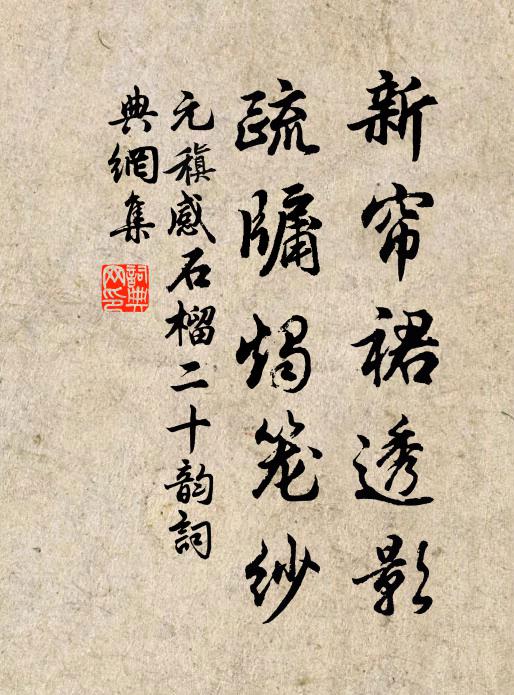 新帘裙透影
疏牖烛笼纱
元稹感石榴二十韵詞
典網集
詞典網印